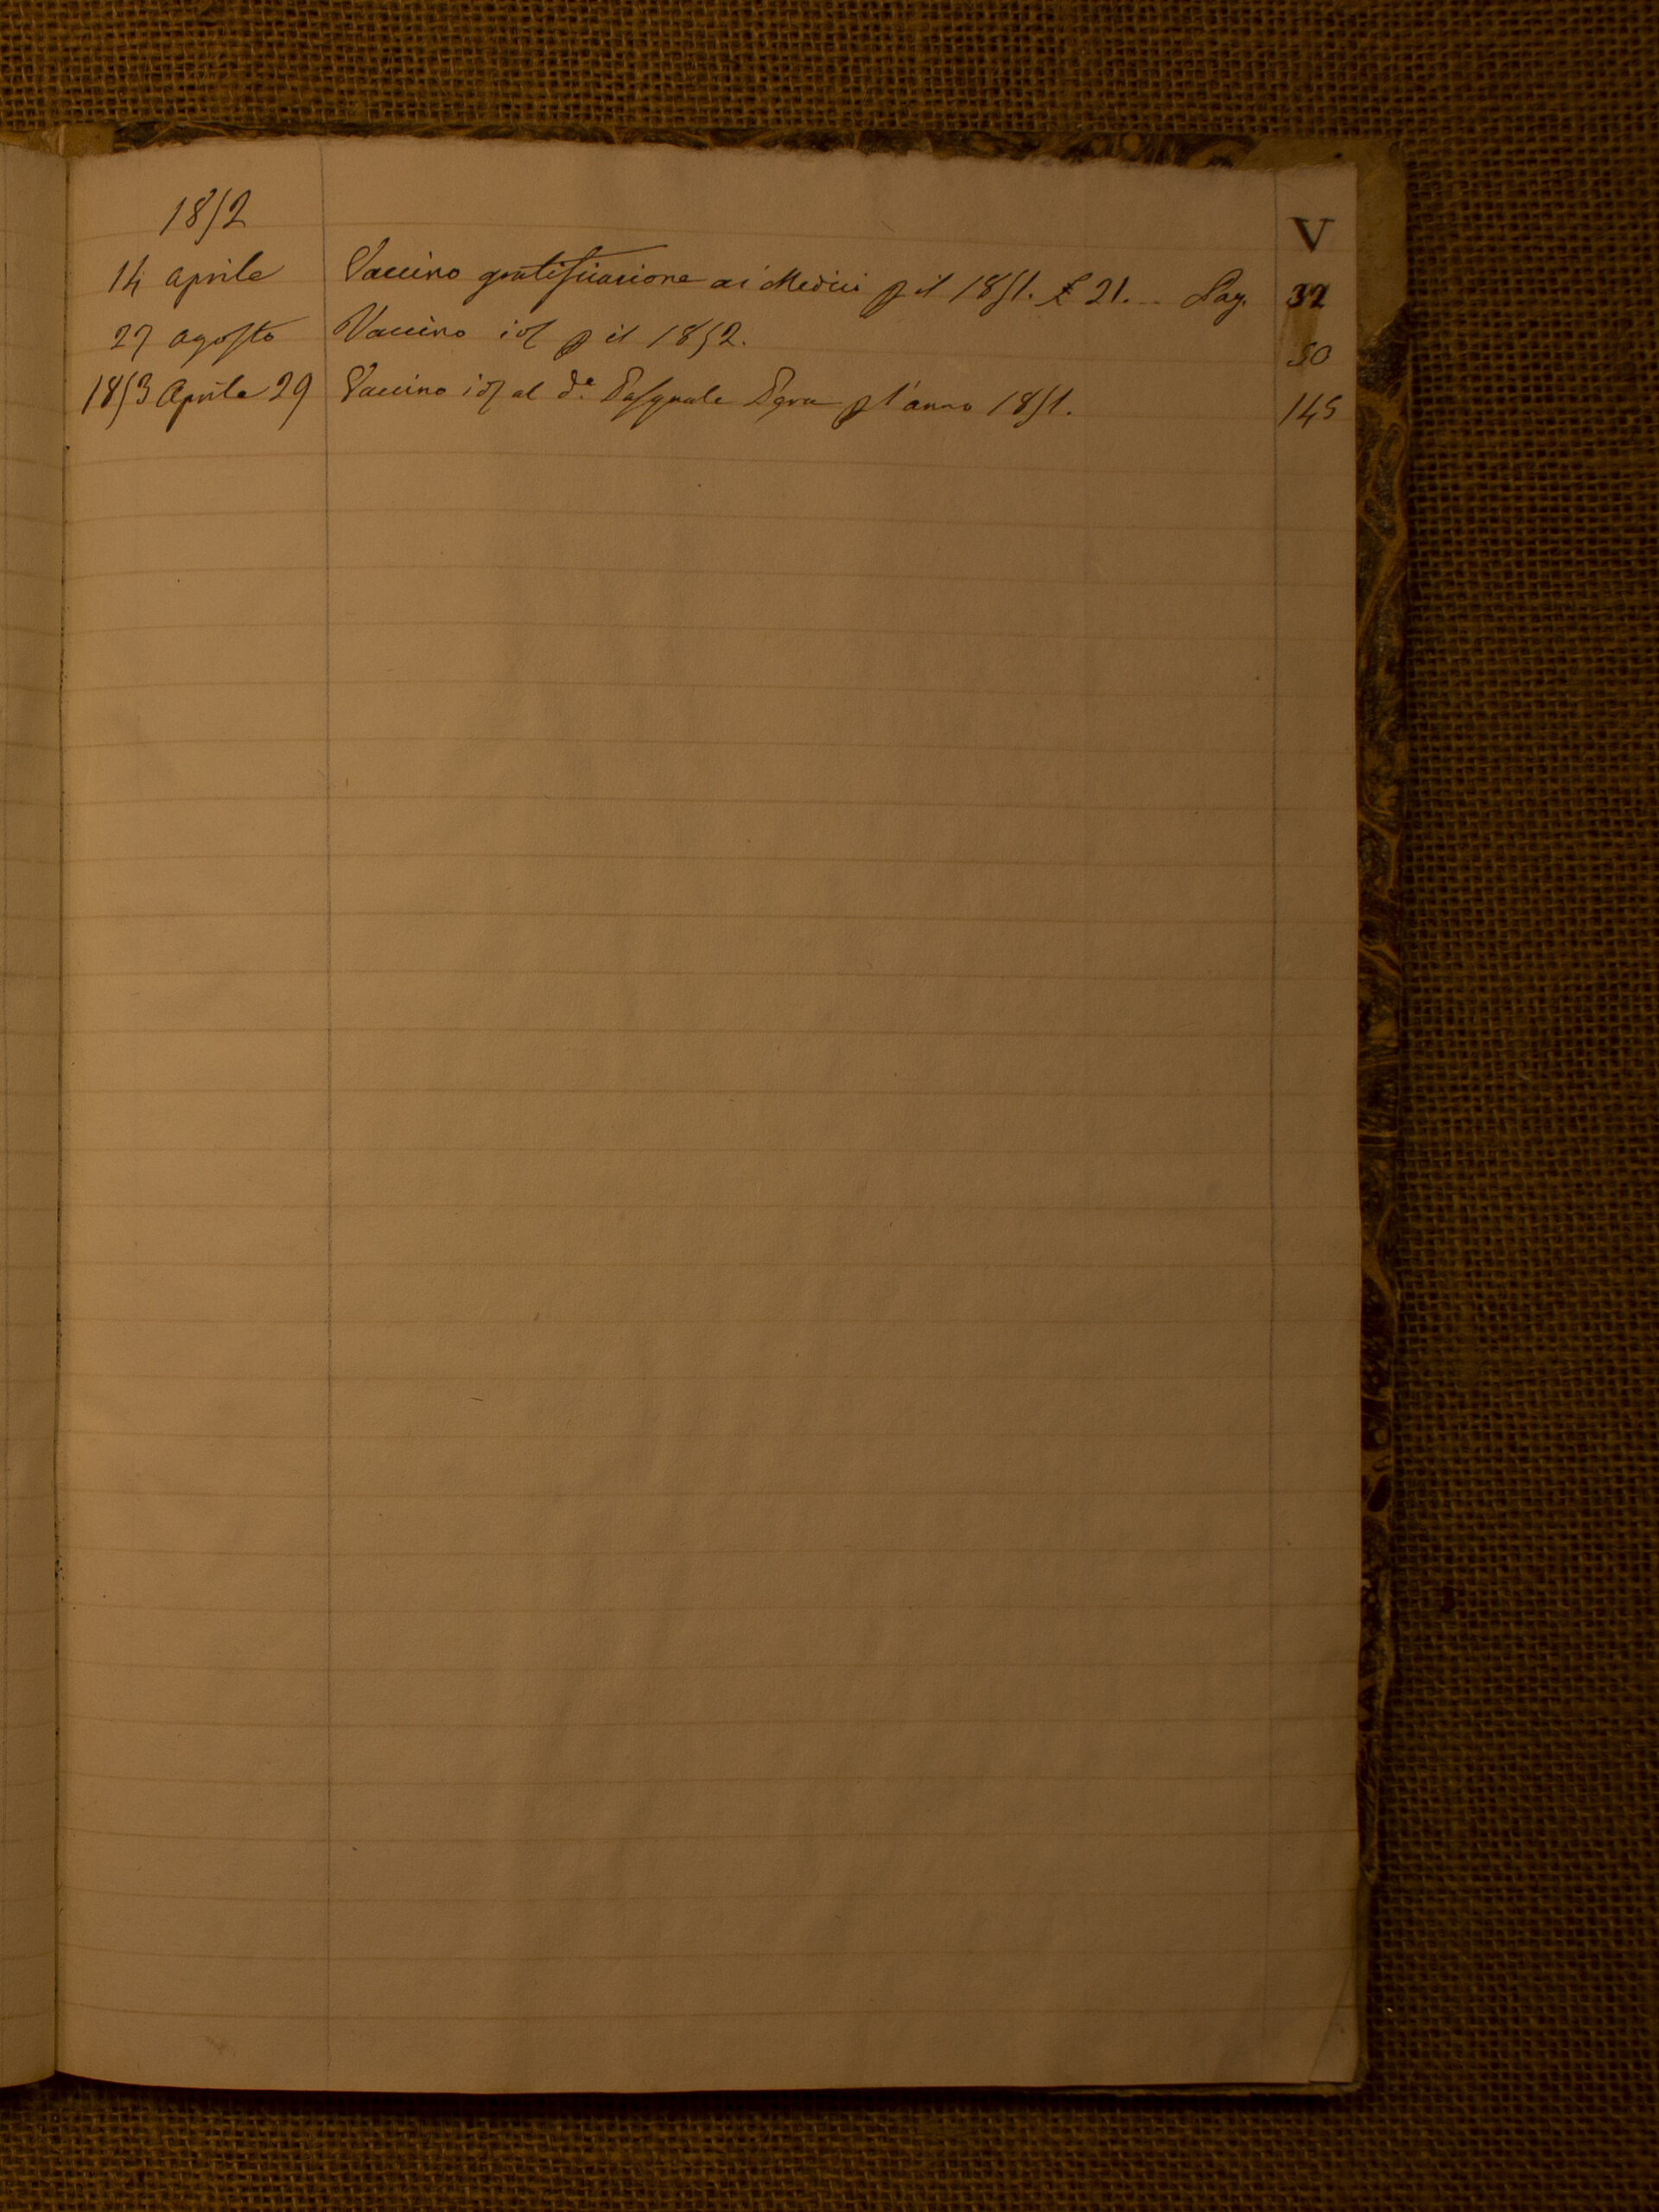 1852
V
14 aprile Vaccino gratificazione ai Medici p il 1851. £ 21... Pag. 32
27 agosto Vaccino id p il 1852. 50
1853 Aprile 29 Vaccino id al d.e Pasquale p l'anno 1851. 145